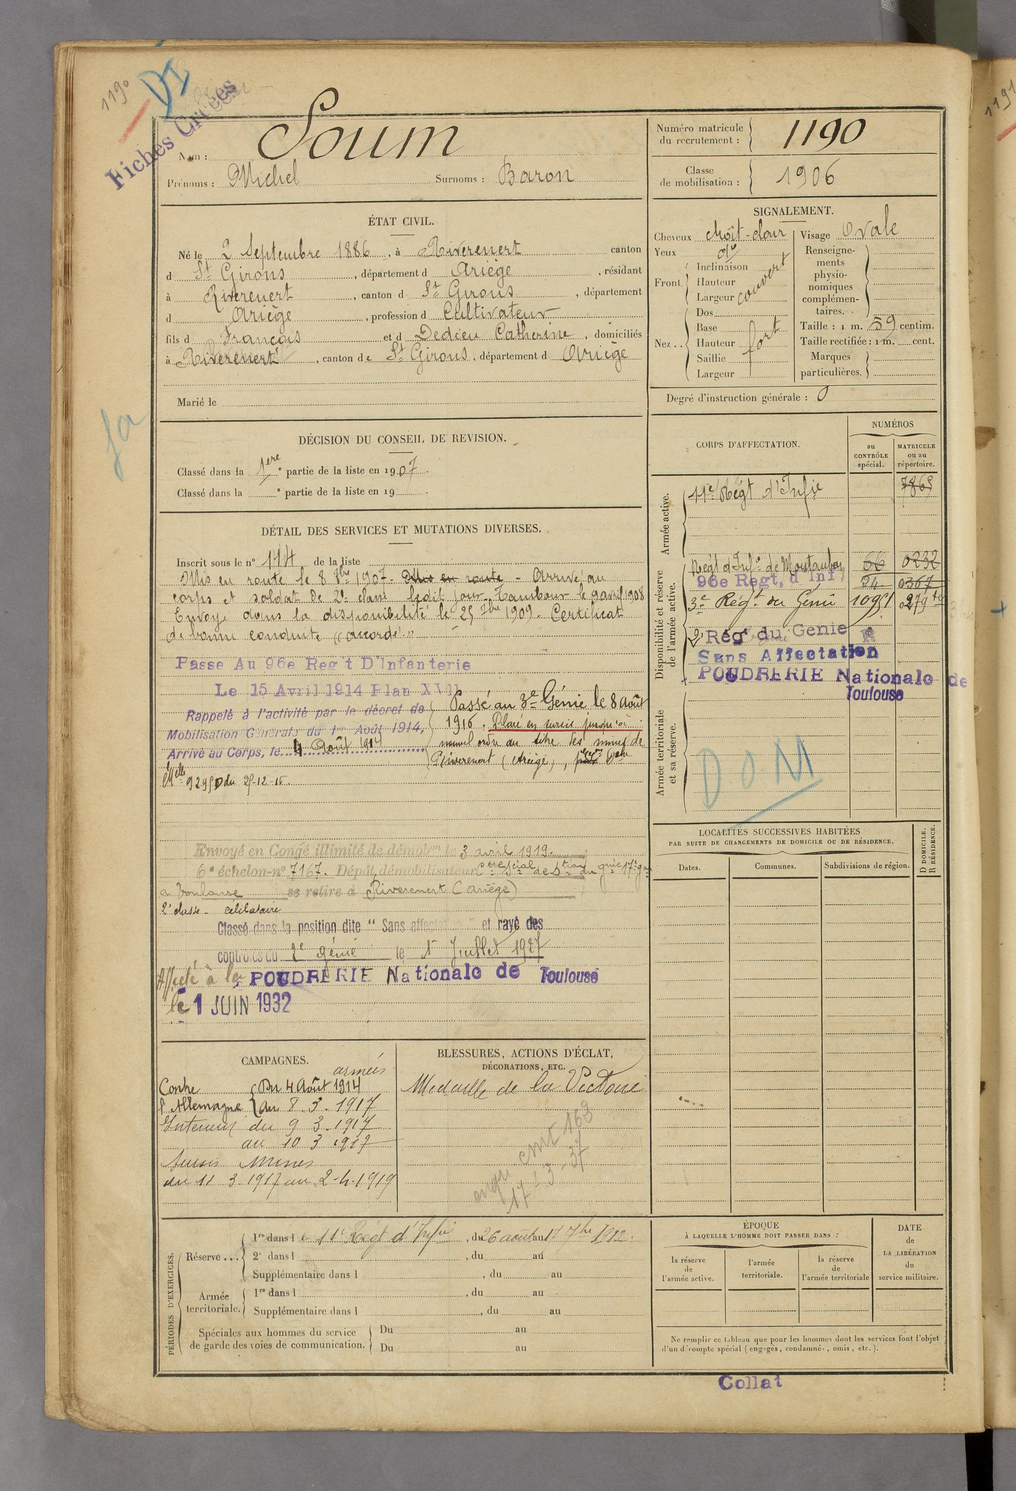 1190
DI
Fiches Créées
Nom : Soum
Prénoms : Michel Surnoms : Baron
Numéro matricule
du recrutement : 1190
Classe
de mobilisation : 1906
ÉTAT CIVIL.
Né le 2 Septembre 1886, à Riverenert canton
d St Girons, département d Ariège, résidant
à Riverenert, canton d St Girons, département
d Ariège, profession d Cultivateur
fils d François et d Dedieu Catherine, domiciliés
à Riverenert, canton de St Girons, département d Ariège
Marié le
SIGNALEMENT.
Cheveux chât-clair Visage Ovale
Yeux
Front. Inclinaison
Hauteur
Largeur
couvert
Nez .. Dos
Base
Hauteur
Saillie
Largeur
fort
Renseigne-
ments
physio-
nomiques
complémen-
taires.
Taille : 1 m. 59 centim.
Taille rectifiée : 1 m. cent.
Marques
particulières.
Degré d'instruction générale : 0
DÉCISION DU CONSEIL DE REVISION.
Classé dans la 1ère partie de la liste en 1907.
Classé dans la e partie de la liste en 19 .
DÉTAIL DES SERVICES ET MUTATIONS DIVERSES.
Inscrit sous le n° 114 de la liste
Mis en route le 8 8bre 1907. Mis en route - Arrivé au
corps et soldat de 2e classe ledit jour. Tambour le 9 avril 1908
Envoyé dans la disponibilité le 25 7bre 1909. Certificat
de bonne conduite "accordé."
Passé Au 96e Reg't D'Infanterie
Le 15 Avril 1914 Plan XVII
Rappelé à l'activité par le décret de
Mobilisation Générale du 1er Août 1914,
Arrivé au Corps, le 4 Août 1914
Passé au 3e Génie le 8 août
1916. Placé en sursis jusqu'à
nouvel ordre au titre des mines de
Riverenert (Ariège),
Envoyé en Congé illimité de démobon le 3 avril 1919.
6e échelon n° 7167. Dépôt démobilisateur
à Toulouse se retire à Riverenert (Ariège)
2e classe - célibataire
Classé dans la position dite "Sans affectation" et rayé des
contrôles du 2e génie le 1er Juillet 1927
Affecté à la POUDRERIE Nationale de Toulouse
le 1 JUIN 1932
CORPS D'AFFECTATION.
NUMÉROS
au
CONTRÔLE
spécial.
MATRICULE
ou au
répertoire.
Armée active.
11e Régt d'Infie 7865
Disponibilité et réserve
de l'armée active.
Régt d'Infie de Montauban 66 0232
96e Regt, d'Inf 24. 0367
3e Régt du Génie
2e Rég du Génie
Sans Affectation
POUDRERIE Nationale de
Toulouse
Armée territoriale
et sa réserve.
DOM
LOCALITÉS SUCCESSIVES HABITÉES
PAR SUITE DE CHANGEMENTS DE DOMICILE OU DE RÉSIDENCE.
Dates. Communes. Subdivisions de région.
D DOMICILE.
R RÉSIDENCE.
CAMPAGNES.
armées
Contre
l'Allemagne
Du 4 Août 1914
au 8.3.1917
Intérieur du 9 3.1917
au 10 3 1917
Sursis Mines
du 11 3.1917 au 2-4-1919
BLESSURES, ACTIONS D'ÉCLAT,
DÉCORATIONS, ETC.
Medaille de la Victoire
PÉRIODES D'EXERCICES.
Réserve ...
1re dans l e 11e Régt d'Infie, du 26 août au 17 7bre 1912.
2e dans l , du au
Supplémentaire dans l , du au
Armée
territoriale.
1re dans l , du au
Supplémentaire dans l , du au
Spéciales aux hommes du service
de garde des voies de communication.
Du au
Du au
ÉPOQUE
À LAQUELLE L'HOMME DOIT PASSER DANS :
la réserve
de
l'armée active.
l'armée
territoriale.
la réserve
de
l'armée territoriale
DATE
de
LA LIBÉRATION
du
service militaire.
Ne remplir ce tableau que pour les hommes dont les services font l'objet
d'un décompte spécial (engagés, condamnés, omis, etc.).
Collat